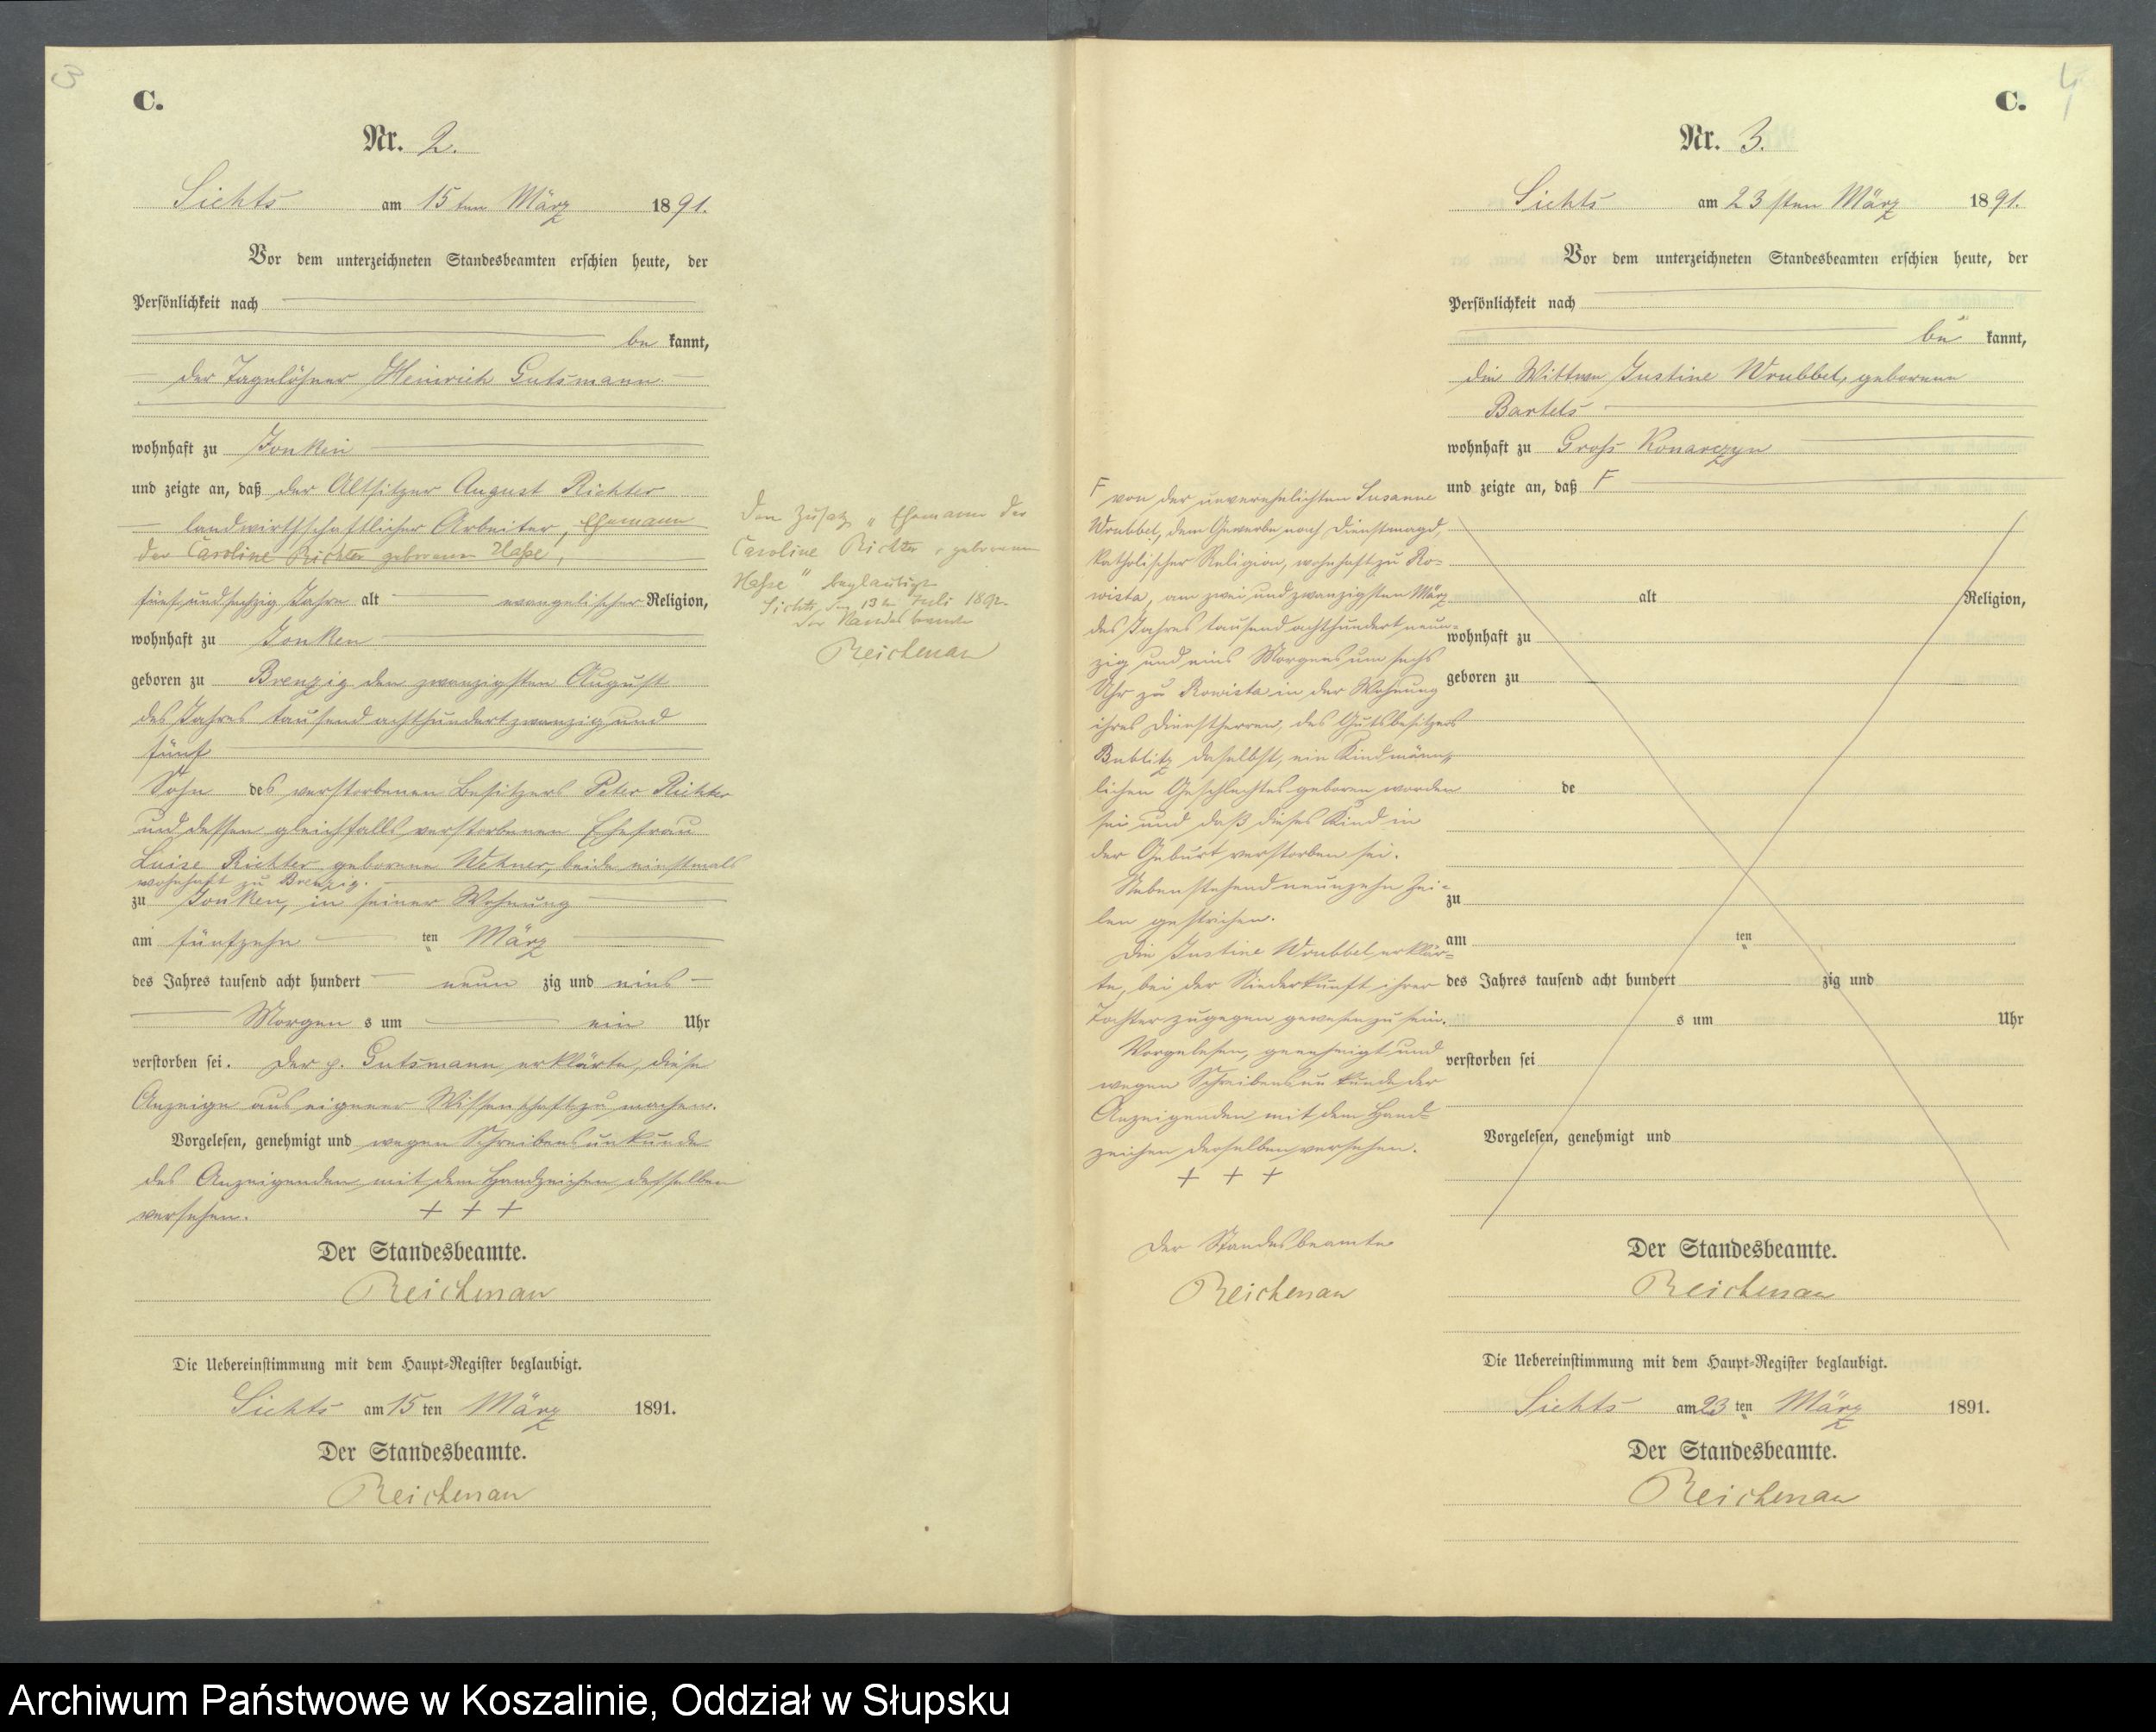 3
C.
Nr. 2.
Sichts am 15ten März 1891.
Vor dem unterzeichneten Standesbeamten erschien heute, der
Persönlichkeit nach
be kannt,
der Tagelöhner Heinrich Gutsmann
wohnhaft zu Jonken
und zeigte an, daß der Altsitzer August Richter
landwirthschaftlicher Arbeiter, Ehemann
der Caroline Richter geborenen Hasse,
fünf und sechzig Jahre alt evangelischer Religion,
wohnhaft zu Jonken
geboren zu Brenzig den zwanzigsten August
des Jahres tausend achthundert zwanzig und
fünf
Sohn des verstorbenen Besitzers Peter Richter
und dessen gleichfalls verstorbenen Ehefrau
Luise Richter geborene Wehner, beide einstmals
wohnhaft zu Brenzig.
zu Jonken, in seiner Wohnung
am fünfzehn ten März
des Jahres tausend acht hundert neun zig und eins
Morgen s um ein Uhr
verstorben sei. Der p. Gutsmann erklärte, diese
Anzeige aus eigener Wissenschaft zu machen.
Vorgelesen, genehmigt und wegen Schreibensunkunde
des Anzeigenden mit dem Handzeichen desselben
versehen. + + +
Der Standesbeamte.
Reichenau
Die Uebereinstimmung mit dem Haupt-Register beglaubigt.
Sichts am 15 ten März 1891.
Der Standesbeamte.
Reichenau
Den Zusatz "Ehemann der
Caroline Richter, geborenen
Hasse" beglaubigt
Sichts, den 13ten Juli 189
Der Standesbeamte
Reichenau
4
C.
Nr. 3.
Sichts am 23sten März 1891.
Vor dem unterzeichneten Standesbeamten erschien heute, der
Persönlichkeit nach
be kannt,
die Wittwe Justine Wrubbel, geborene
Bartels
wohnhaft zu Gross Konarczyn
und zeigte an, daß F
alt Religion,
wohnhaft zu
geboren zu
de
zu
am ten
des Jahres tausend acht hundert zig und
s um Uhr
verstorben sei
Vorgelesen, genehmigt und
F von der unverehelichten Susanne
Wrubbel, dem Gewerbe nach Dienstmagd,
katholischer Religion, wohnhaft zu Ro=
wista, am zwei und zwanzigsten März
des Jahres tausend achthundert neun=
zig und eins Morgens um sechs
Uhr zu Rowista in der Wohnung
ihres Dienstherren, des Gutsbesitzers
Bublitz daselbst, ein Kind männ=
lichen Geschlechtes geboren worden
sei und daß dieses Kind in
der Geburt verstorben sei.
Nebenstehend neunzehn Zei=
len gestrichen.
Die Justine Wrubbel erklär=
te, bei der Niederkunft ihrer
Tochter zugegen gewesen zu sein.
Vorgelesen, genehmigt und
wegen Schreibensunkunde der
Anzeigenden mit dem Hand=
zeichen derselben versehen.
+ + +
Der Standesbeamte
Reichenau
Der Standesbeamte.
Reichenau
Die Uebereinstimmung mit dem Haupt-Register beglaubigt.
Sichts am 23 ten März 1891.
Der Standesbeamte.
Reichenau
Archiwum Państwowe w Koszalinie, Oddział w Słupsku